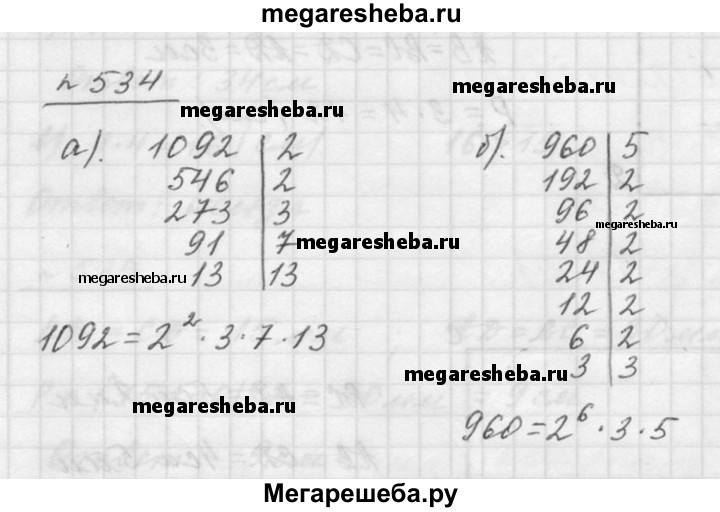 megaresheba.ru
№ 534
megaresheba.ru
а). 1092 | 2
546 | 2
273 | 3
91 | 7
megaresheba.ru
megaresheba.ru
13 | 13
1092 = 2² · 3 · 7 · 13
megaresheba.ru
б). 960 | 5
192 | 2
96 | 2
megaresheba.ru
48 | 2
24 | 2
12 | 2
6 | 2
3 | 3
megaresheba.ru
960 = 2⁶ · 3 · 5
Мегарешеба.ру